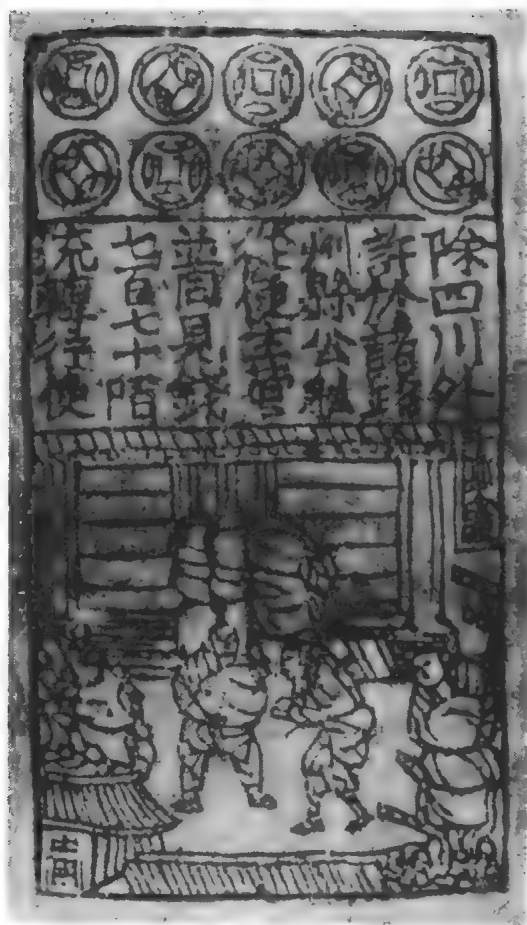 除四川外
許於諸路
州縣公私
從便主管
並同見錢
七百七十陌
流轉行便